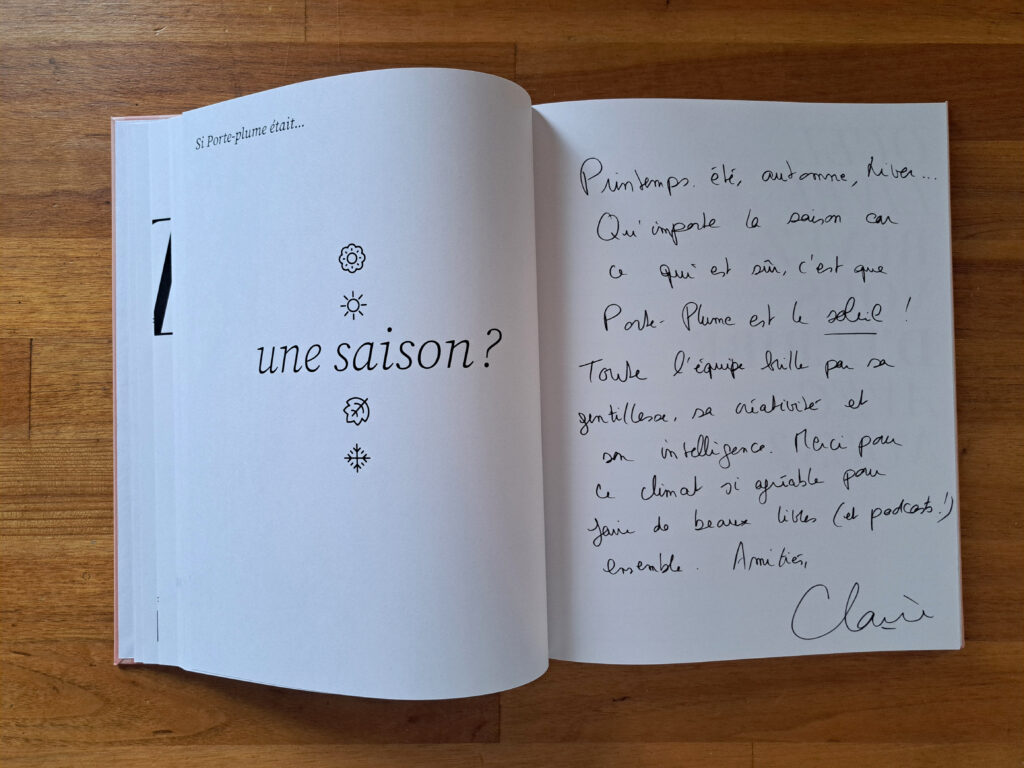 Si Porte-plume était...
une saison ?
Printemps. été, automne, hiver...
Qu'importe la saison car
ce qui est sûr, c'est que
Porte-Plume est le soleil !
Toute l'équipe brille par sa
gentillesse, sa créativité et
son intelligence. Merci pour
ce climat si agréable pour
faire de beaux livres (et podcasts !)
ensemble. Amitiés,
Claire